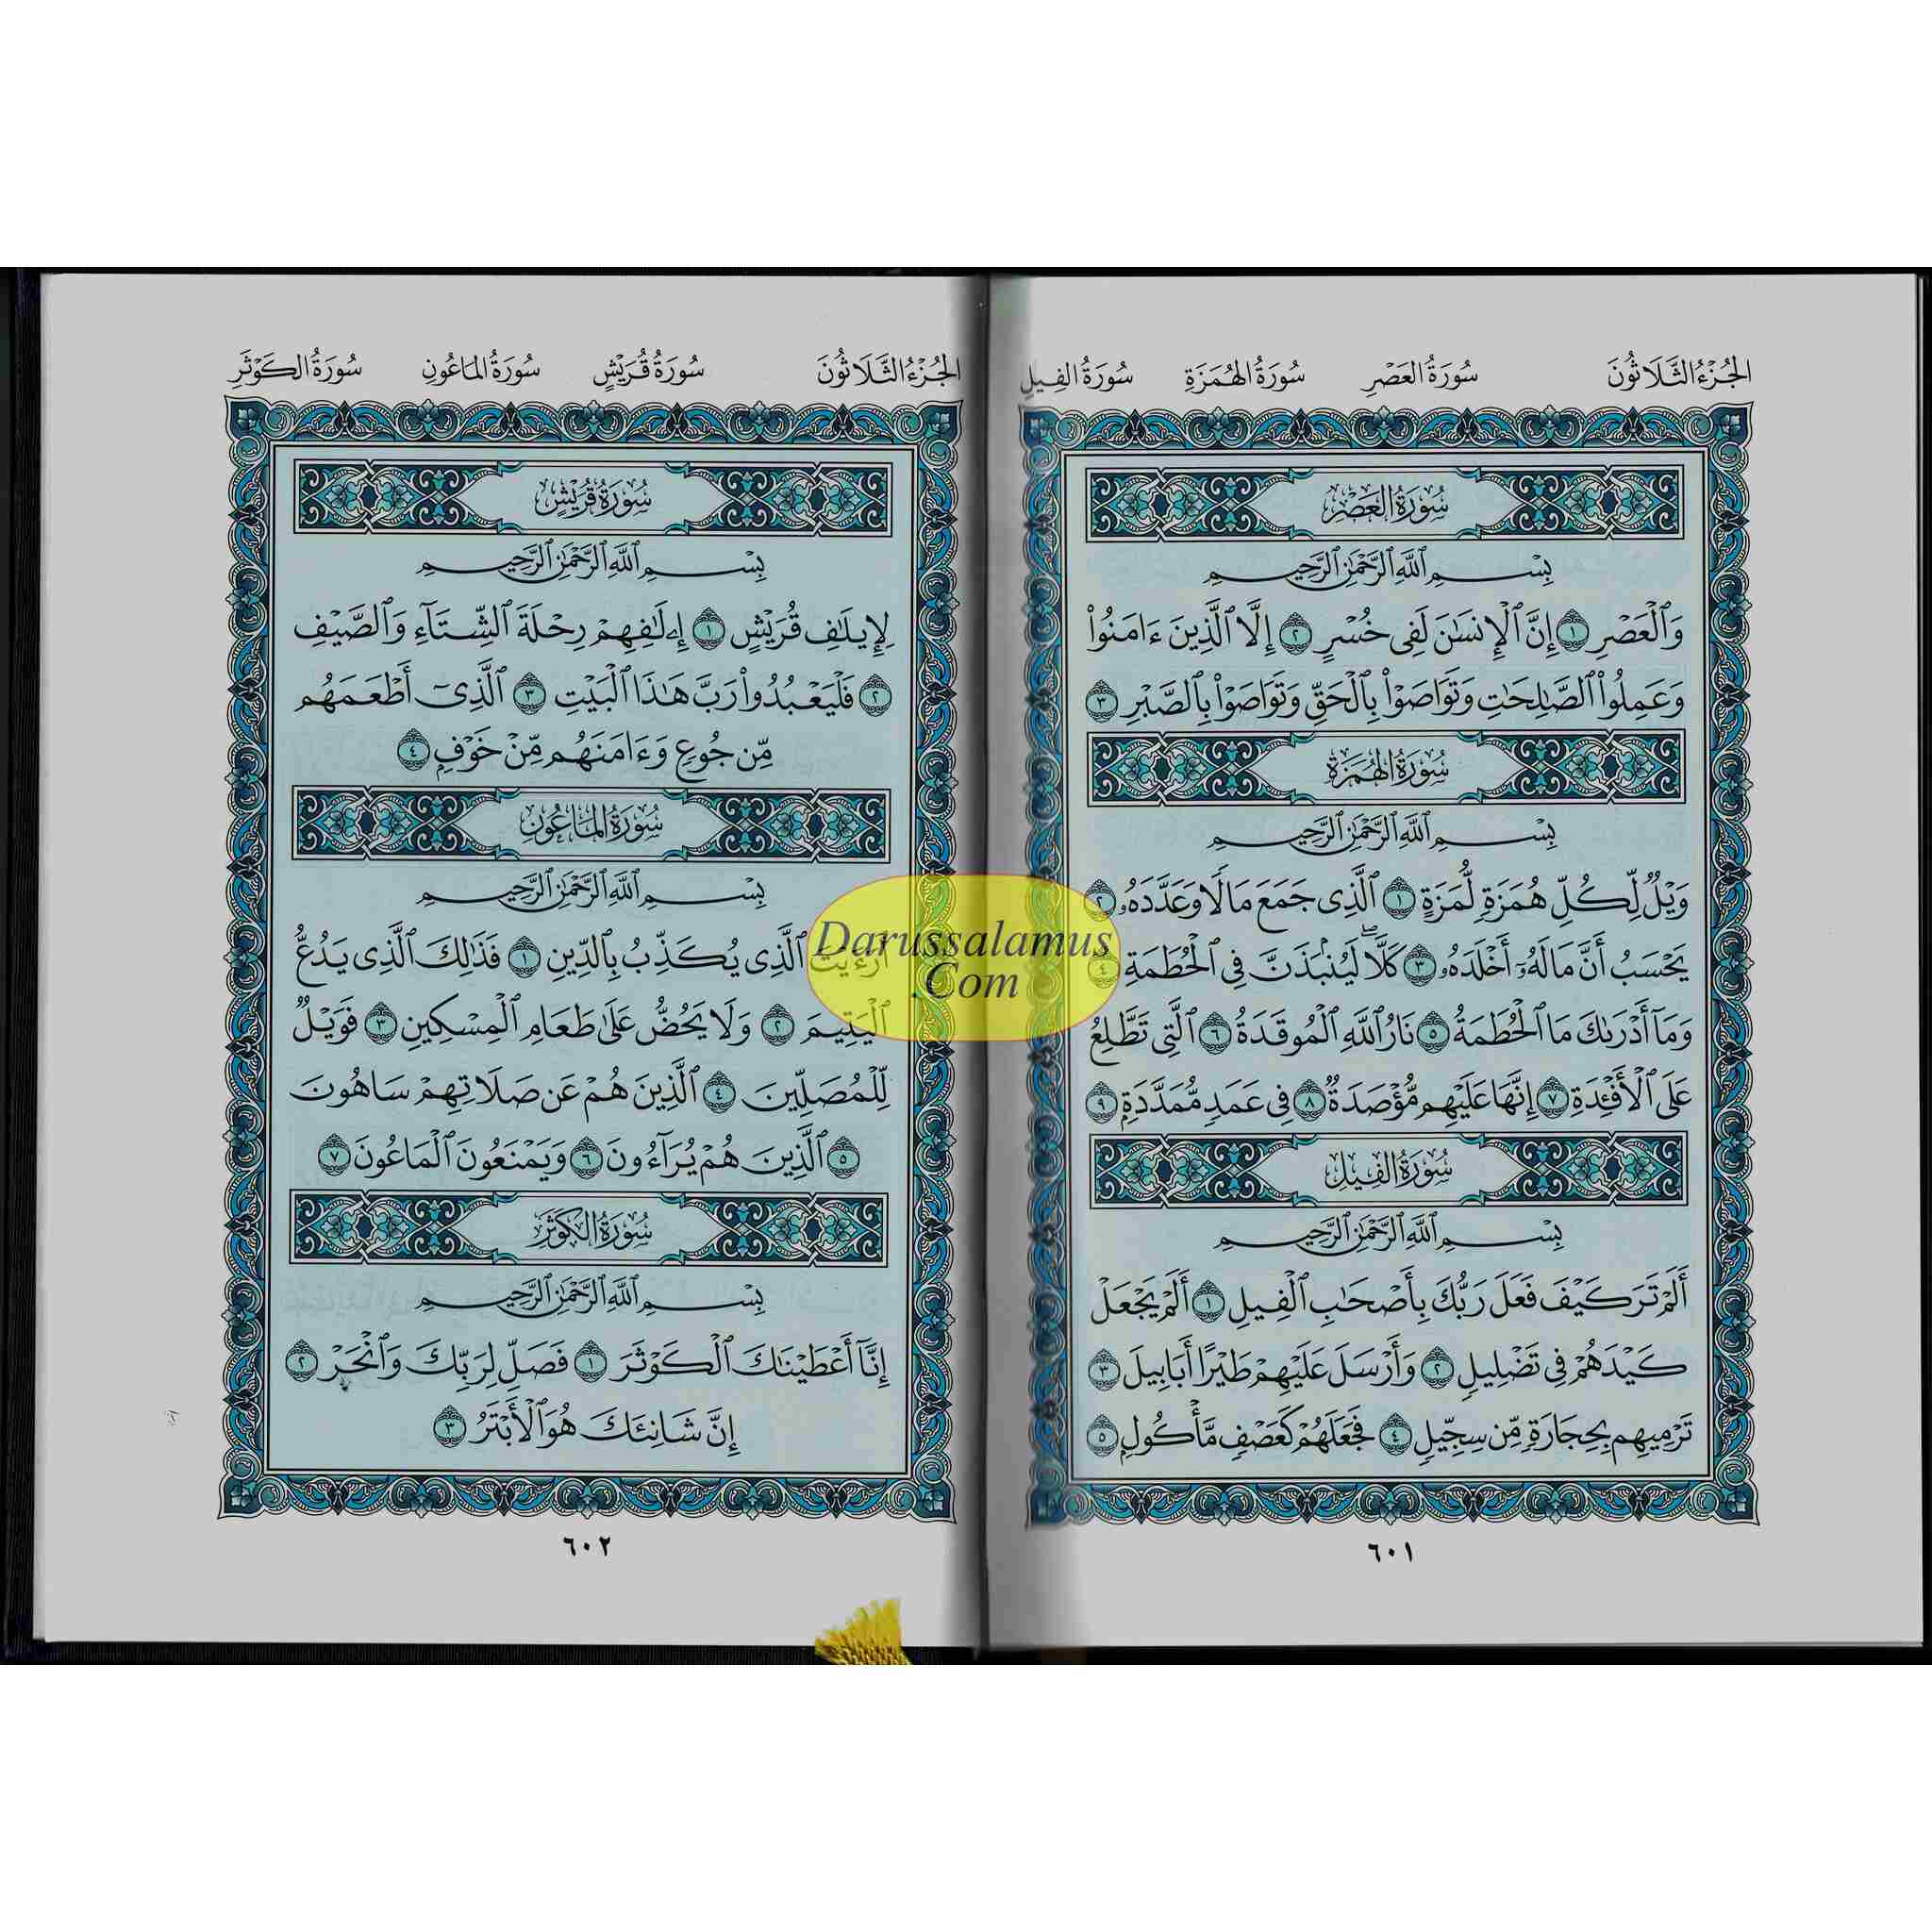 الجُزْءُ الثَّلَاثُونَ سُورَةُ العَصْرِ سُورَةُ الهُمَزَةِ سُورَةُ الفِيلِ
سُورَةُ العَصْرِ
بِسْمِ ٱللَّهِ ٱلرَّحْمَٰنِ ٱلرَّحِيمِ
وَٱلْعَصْرِ ١ إِنَّ ٱلْإِنسَٰنَ لَفِى خُسْرٍ ٢ إِلَّا ٱلَّذِينَ ءَامَنُوا۟
وَعَمِلُوا۟ ٱلصَّٰلِحَٰتِ وَتَوَاصَوْا۟ بِٱلْحَقِّ وَتَوَاصَوْا۟ بِٱلصَّبْرِ ٣
سُورَةُ الهُمَزَةِ
بِسْمِ ٱللَّهِ ٱلرَّحْمَٰنِ ٱلرَّحِيمِ
وَيْلٌ لِّكُلِّ هُمَزَةٍ لُّمَزَةٍ ١ ٱلَّذِى جَمَعَ مَالًا وَعَدَّدَهُۥ ٢
يَحْسَبُ أَنَّ مَالَهُۥٓ أَخْلَدَهُۥ ٣ كَلَّا ۖ لَيُنۢبَذَنَّ فِى ٱلْحُطَمَةِ ٤
وَمَآ أَدْرَىٰكَ مَا ٱلْحُطَمَةُ ٥ نَارُ ٱللَّهِ ٱلْمُوقَدَةُ ٦ ٱلَّتِى تَطَّلِعُ
عَلَى ٱلْأَفْـِٔدَةِ ٧ إِنَّهَا عَلَيْهِم مُّؤْصَدَةٌ ٨ فِى عَمَدٍ مُّمَدَّدَةٍۭ ٩
سُورَةُ الفِيلِ
بِسْمِ ٱللَّهِ ٱلرَّحْمَٰنِ ٱلرَّحِيمِ
أَلَمْ تَرَ كَيْفَ فَعَلَ رَبُّكَ بِأَصْحَٰبِ ٱلْفِيلِ ١ أَلَمْ يَجْعَلْ
كَيْدَهُمْ فِى تَضْلِيلٍ ٢ وَأَرْسَلَ عَلَيْهِمْ طَيْرًا أَبَابِيلَ ٣
تَرْمِيهِم بِحِجَارَةٍ مِّن سِجِّيلٍ ٤ فَجَعَلَهُمْ كَعَصْفٍ مَّأْكُولٍۭ ٥
٦٠١
الجُزْءُ الثَّلَاثُونَ سُورَةُ قُرَيْشٍ سُورَةُ المَاعُونِ سُورَةُ الكَوْثَرِ
سُورَةُ قُرَيْشٍ
بِسْمِ ٱللَّهِ ٱلرَّحْمَٰنِ ٱلرَّحِيمِ
لِإِيلَٰفِ قُرَيْشٍ ١ إِۦلَٰفِهِمْ رِحْلَةَ ٱلشِّتَآءِ وَٱلصَّيْفِ
٢ فَلْيَعْبُدُوا۟ رَبَّ هَٰذَا ٱلْبَيْتِ ٣ ٱلَّذِىٓ أَطْعَمَهُم
مِّن جُوعٍ وَءَامَنَهُم مِّنْ خَوْفٍۭ ٤
سُورَةُ المَاعُونِ
بِسْمِ ٱللَّهِ ٱلرَّحْمَٰنِ ٱلرَّحِيمِ
أَرَءَيْتَ ٱلَّذِى يُكَذِّبُ بِٱلدِّينِ ١ فَذَٰلِكَ ٱلَّذِى يَدُعُّ
ٱلْيَتِيمَ ٢ وَلَا يَحُضُّ عَلَىٰ طَعَامِ ٱلْمِسْكِينِ ٣ فَوَيْلٌ
لِّلْمُصَلِّينَ ٤ ٱلَّذِينَ هُمْ عَن صَلَاتِهِمْ سَاهُونَ
٥ ٱلَّذِينَ هُمْ يُرَآءُونَ ٦ وَيَمْنَعُونَ ٱلْمَاعُونَ ٧
سُورَةُ الكَوْثَرِ
بِسْمِ ٱللَّهِ ٱلرَّحْمَٰنِ ٱلرَّحِيمِ
إِنَّآ أَعْطَيْنَٰكَ ٱلْكَوْثَرَ ١ فَصَلِّ لِرَبِّكَ وَٱنْحَرْ ٢
إِنَّ شَانِئَكَ هُوَ ٱلْأَبْتَرُ ٣
٦٠٢
Darussalamus
.Com